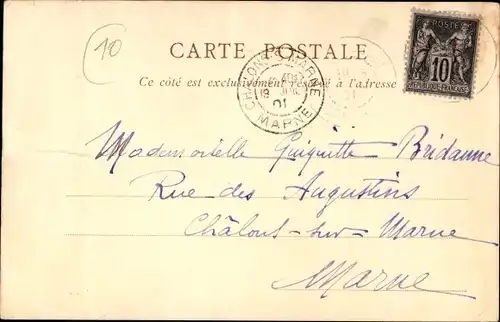 10
CARTE POSTALE
POSTES
10
REPUBLIQUE FRANCAISE
Ce côté est exclusivement réservé à l'adresse
CHALONS S MARNE
19
01
MARNE
Mademoiselle Guiguitte Bridanne
Rue des Augustins
Châlons-sur-Marne
Marne